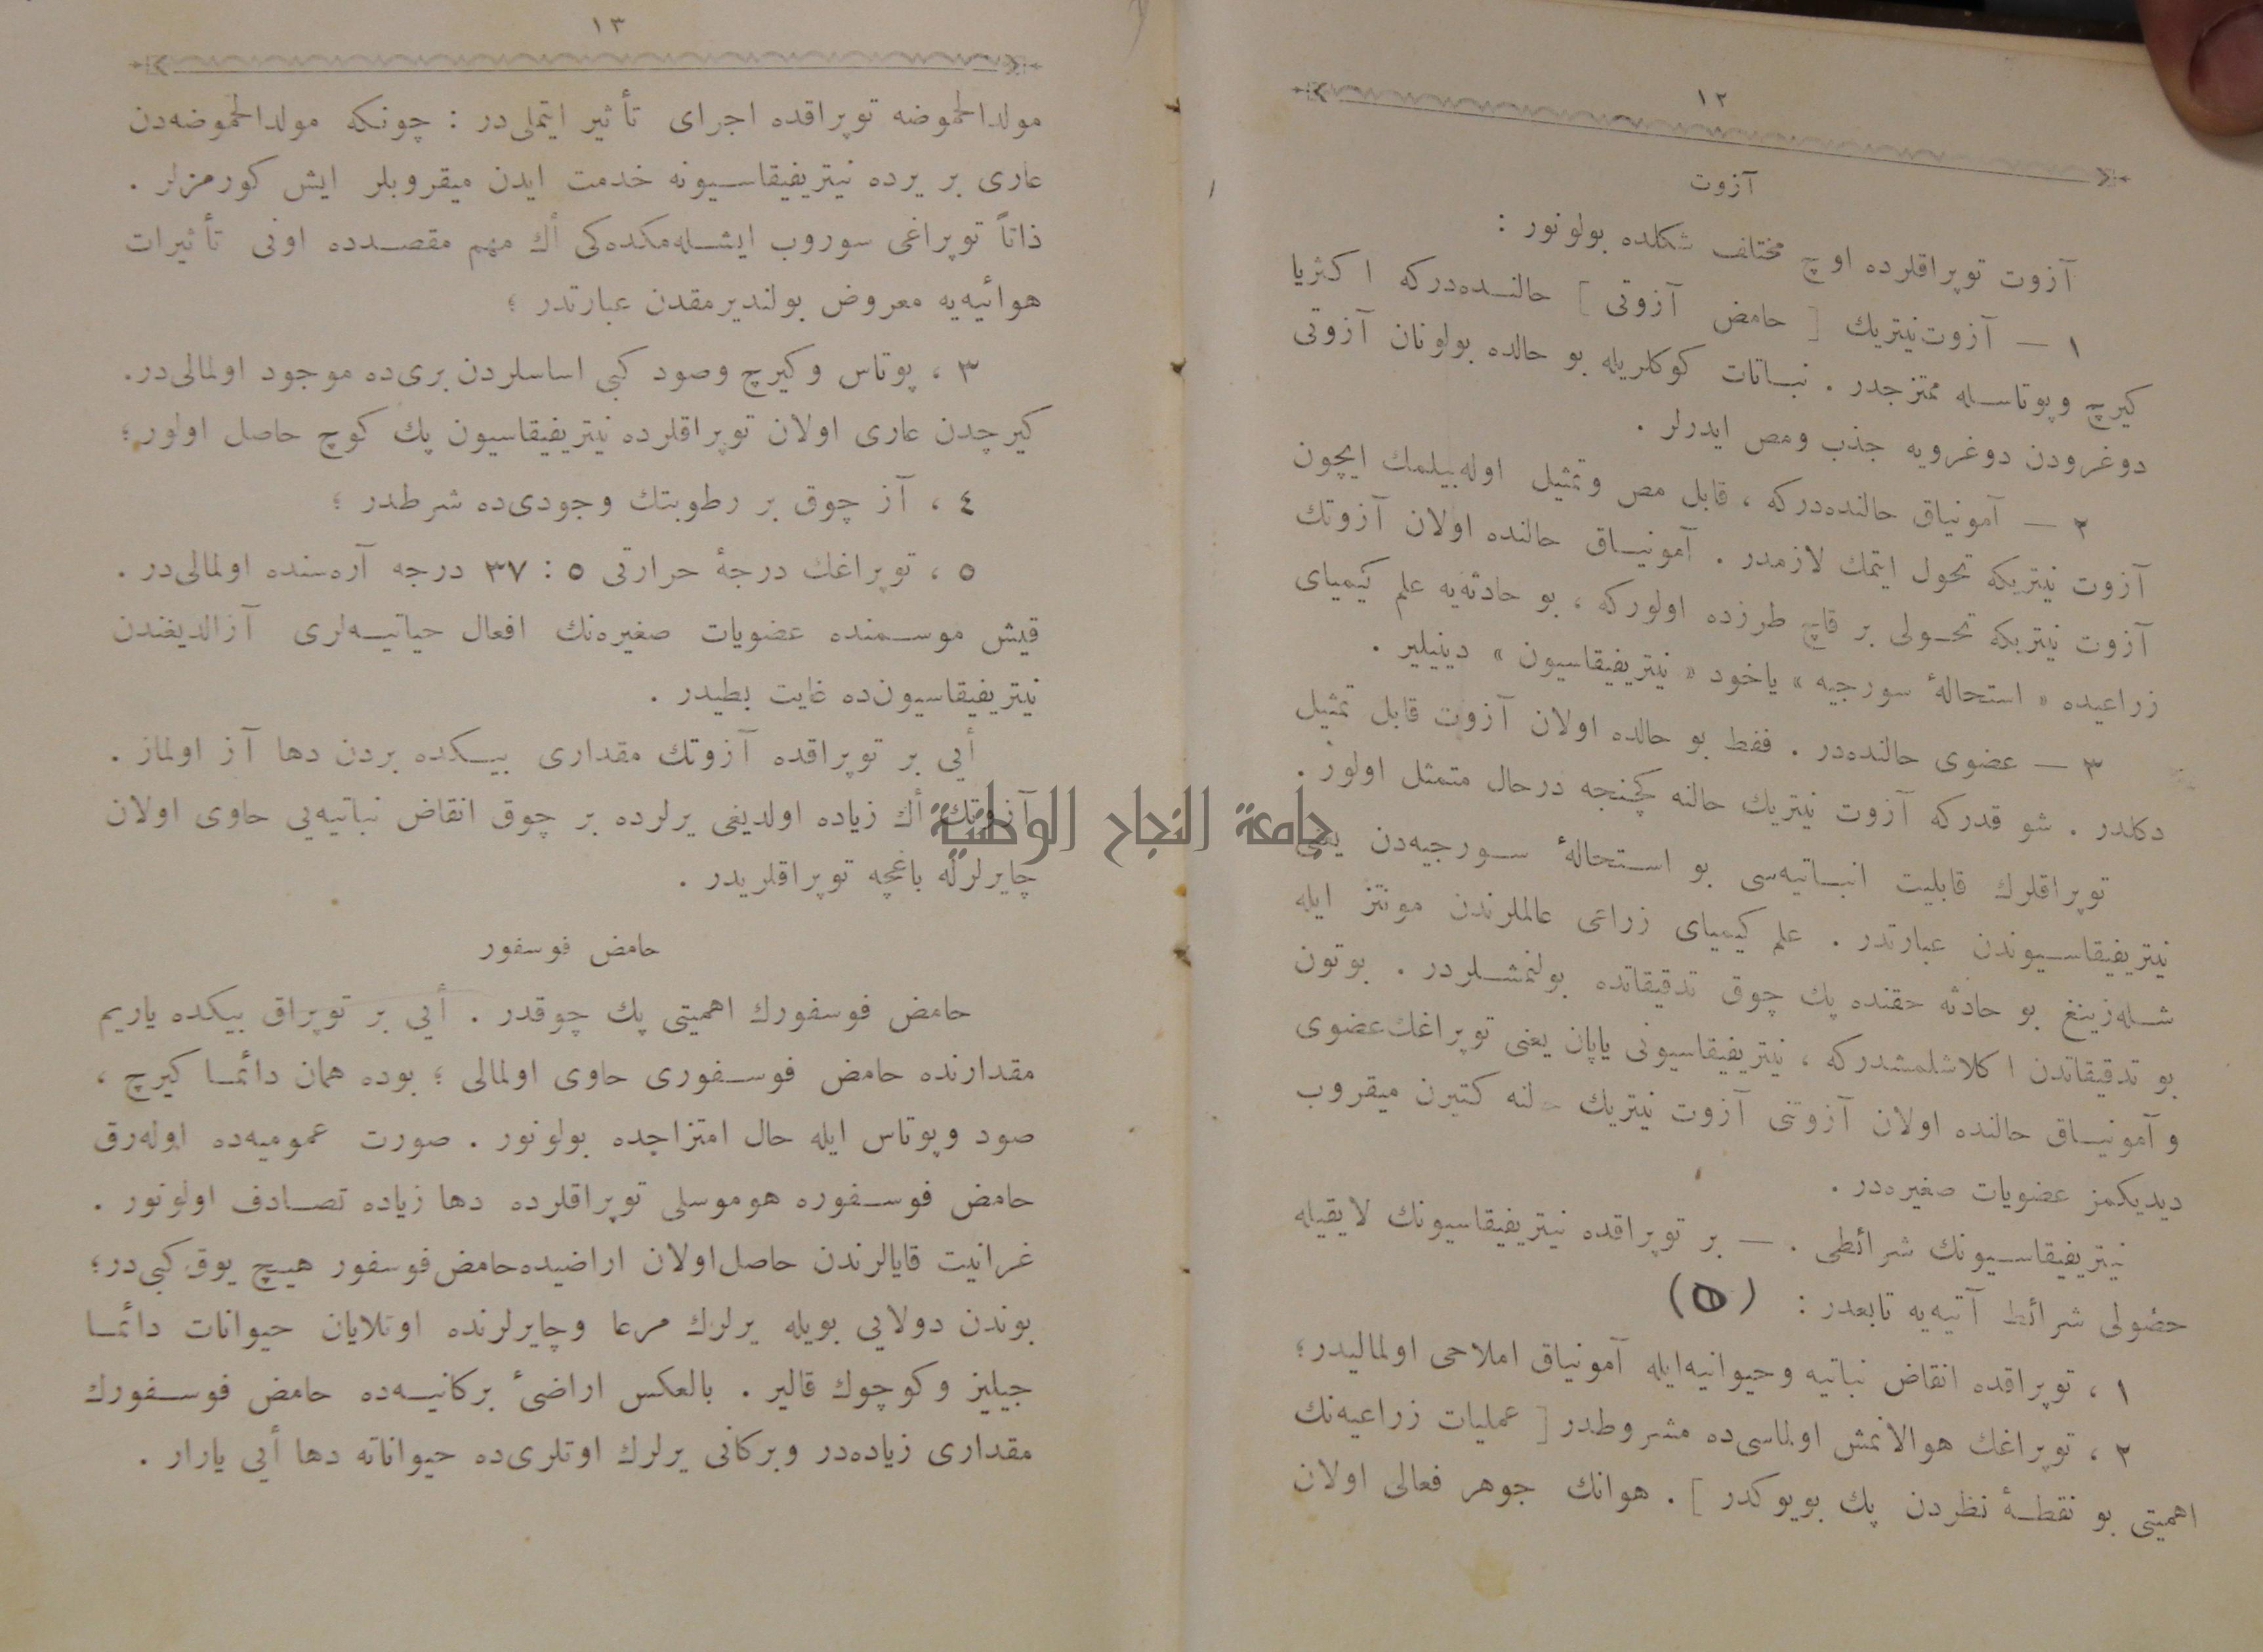 ١٢
آزوت
آزوت توپراقلرده اوچ مختلف شكلده بولونور :
١ — آزوت‌نيتريك [ حامض آزوتى ] حالنده‌دركه اكثريا
كيرچ وپوتاسله ممتزجدر . نباتات كوكلريله بو حالده بولونان آزوتى
دوغرودن دوغرويه جذب ومص ايدرلر .
٢ — آمونياق حالنده‌دركه ، قابل مص وتمثيل اوله‌بيلمك ايچون
آزوت نيتريكه تحول ايتمك لازمدر . آمونياق حالنده اولان آزوتك
آزوت نيتريكه تحولى بر قاچ طرزده اولوركه ، بو حادثه‌يه علم كيمياى
زراعيده « استحالهٔ سورجيه » ياخود « نيتريفيقاسيون » دينيلير .
٣ — عضوى حالنده‌در . فقط بو حالده اولان آزوت قابل تمثيل
دكلدر . شو قدركه آزوت نيتريك حالنه كچنجه درحال متمثل اولور .
توپراقلرك قابليت انباتيه‌سى بو استحالهٔ سورجيه‌دن يعنى
نيتريفيقاسيوندن عبارتدر . علم كيمياى زراعى عالملرندن مونتز ايله
شله‌زينغ بو حادثه حقنده پك چوق تدقيقاتده بولنمشلردر . بوتون
بو تدقيقاتدن اكلاشلمشدركه ، نيتريفيقاسيونى ياپان يعنى توپراغك‌عضوى
وآمونياق حالنده اولان آزوتنى آزوت نيتريك حالنه كتيرن ميقروب
ديديكمز عضويات صغيره‌در .
نيتريفيقاسيونك شرائطى . — بر توپراقده نيتريفيقاسيونك لايقيله
حصولى شرائط آتيه‌يه تابعدر : (٥)
١ ، توپراقده انقاض نباتيه وحيوانيه‌ايله آمونياق املاحى اولماليدر ؛
٢ ، توپراغك هوالانمش اولماسى‌ده مشروطدر [ عمليات زراعيه‌نك
اهميتى بو نقطهٔ نظردن پك بويوكدر ] . هوانك جوهر فعالى اولان
١٣
مولدالحموضه توپراقده اجراى تأثير ايتملى‌در : چونكه مولدالحموضه‌دن
عارى بر يرده نيتريفيقاسيونه خدمت ايدن ميقروبلر ايش كورمزلر .
ذاتاً توپراغى سوروب ايشله‌مكده‌كى أك مهم مقصدده اونى تأثيرات
هوائيه‌يه معروض بولنديرمقدن عبارتدر ؛
٣ ، پوتاس وكيرچ وصود كبى اساسلردن برى‌ده موجود اولمالى‌در.
كيرچدن عارى اولان توپراقلرده نيتريفيقاسيون پك كوچ حاصل اولور ؛
٤ ، آز چوق بر رطوبتك وجودى‌ده شرطدر ؛
٥ ، توپراغك درجهٔ حرارتى ٥ : ٣٧ درجه آره‌سنده اولمالى‌در .
قيش موسمنده عضويات صغيره‌نك افعال حياتيه‌لرى آزالديغندن
نيتريفيقاسيون‌ده غايت بطيدر .
أيى بر توپراقده آزوتك مقدارى بيكده بردن دها آز اولماز .
آزوتك أك زياده اولديغى يرلرده بر چوق انقاض نباتيه‌يى حاوى اولان
چايرلرله باغچه توپراقلريدر .
حامض فوسفور
حامض فوسفورك اهميتى پك چوقدر . أيى بر توپراق بيكده ياريم
مقدارنده حامض فوسفورى حاوى اولمالى ؛ بوده همان دائما كيرچ ،
صود وپوتاس ايله حال امتزاجده بولونور . صورت عموميه‌ده اوله‌رق
حامض فوسفوره هوموسلى توپراقلرده دها زياده تصادف اولونور .
غرانيت قايالرندن حاصل‌اولان اراضيده‌حامض‌فوسفور هيچ يوق كبى‌در ؛
بوندن دولايى بويله يرلرك مرعا وچايرلرنده اوتلايان حيوانات دائما
جيليز وكوچوك قالير . بالعكس اراضىٔ بركانيه‌ده حامض فوسفورك
مقدارى زياده‌در وبركانى يرلرك اوتلرى‌ده حيواناته دها أيى يارار .
جامعة النجاح الوطنية